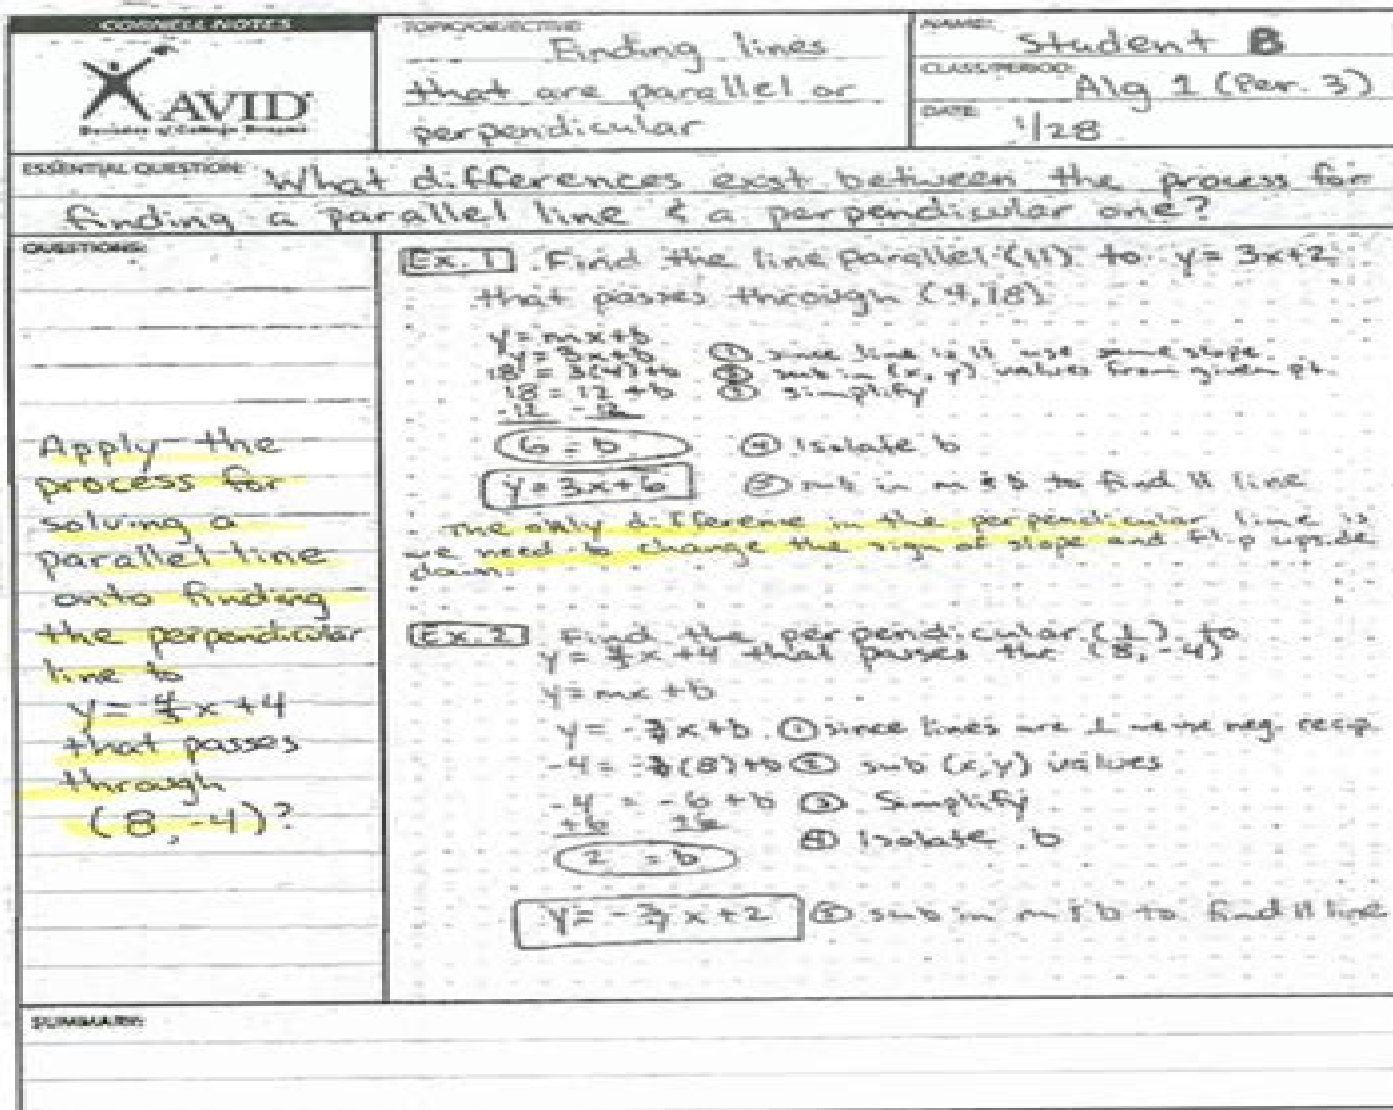 CORNELL NOTES
AVID
Decades of College Dreams
TOPIC/OBJECTIVE:
Finding lines
that are parallel or
perpendicular
NAME: Student B
CLASS/PERIOD: Alg 1 (Per. 3)
DATE: 1/28
ESSENTIAL QUESTION: What differences exist between the process for
finding a parallel line & a perpendicular one?
QUESTIONS:
Apply the
process for
solving a
parallel line
onto finding
the perpendicular
line to
y = x + 4
that passes
through
(8, -4)?
Ex. 1 Find the line parallel (11) to y = 3x+2
that passes through (4,18)
y = mx + b
y = 3x + b ① since line is 11 use same slope
18 = 3(4) + b ② sub in (x, y) values from given pt.
18 = 12 + b ③ simplify
-12 -12
6 = b ④ Isolate b
y = 3x + 6 ⑤ sub in m & b to find 11 line
The only difference in the perpendicular line is
we need to change the sign of slope and flip upside
down.
Ex. 2 Find the perpendicular (⊥) to
y = x + 4 that passes thr (8, -4)
y = mx + b
y = - x + b ① since lines are ⊥ we use neg. recip.
-4 = - (8) + b ② sub (x, y) values
-4 = -6 + b ③ Simplify
+6 +6
2 = b ④ Isolate b
y = - x + 2 ⑤ sub in m & b to find 11 line
SUMMARY: